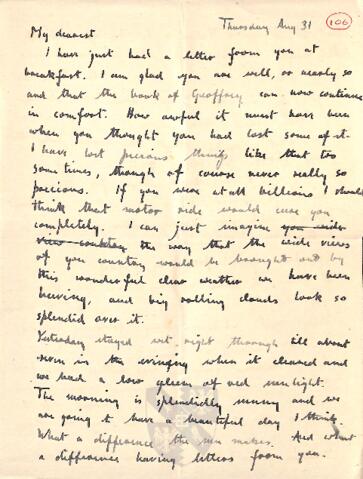 Thursday Aug 31
106
My dearest
I have just had a letter from you at
breakfast. I am glad you are well, or nearly so
and that the book of Geoffrey can now continue
in comfort. How awful it must have been
when you thought you had lost some of it.
I have lost precious things like that too
sometimes, though of course never really so
precious. If you were at all bilious I should
think that motor ride would cure you
completely. I can just imagine you wider
view country the way that the wide views
of your country would be brought out by
this wonderful clear weather we have been
having, and big rolling clouds look so
splendid over it.
Yesterday stayed wet right through till about
seven in the evening when it cleared and
we had a low gleam of red sunlight.
The morning is splendidly sunny and we
are going to have a beautiful day I think.
What a difference the sun makes. And what
a difference having letters from you.